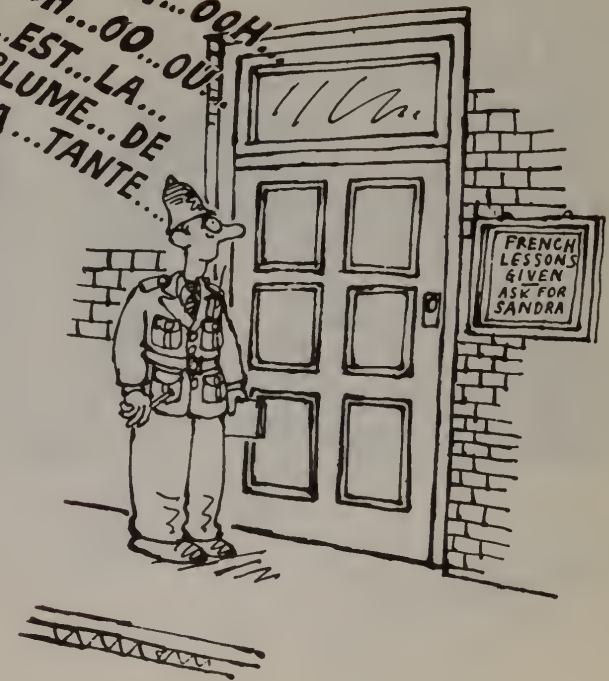 OOH...
OO...OU...
...EST...LA...
PLUME...DE
...TANTE...
FRENCH
LESSONS
GIVEN
ASK FOR
SANDRA